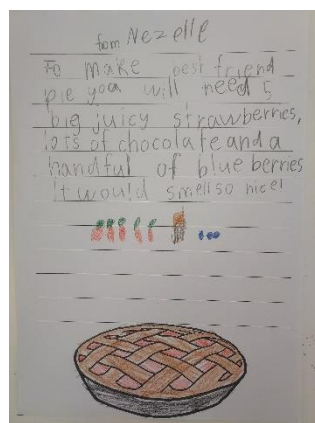 from Nezelle
To make best friend
pie you will need 5
big juicy strawberries,
lots of chocolate and a
handful of blueberries
it would smell so nice!